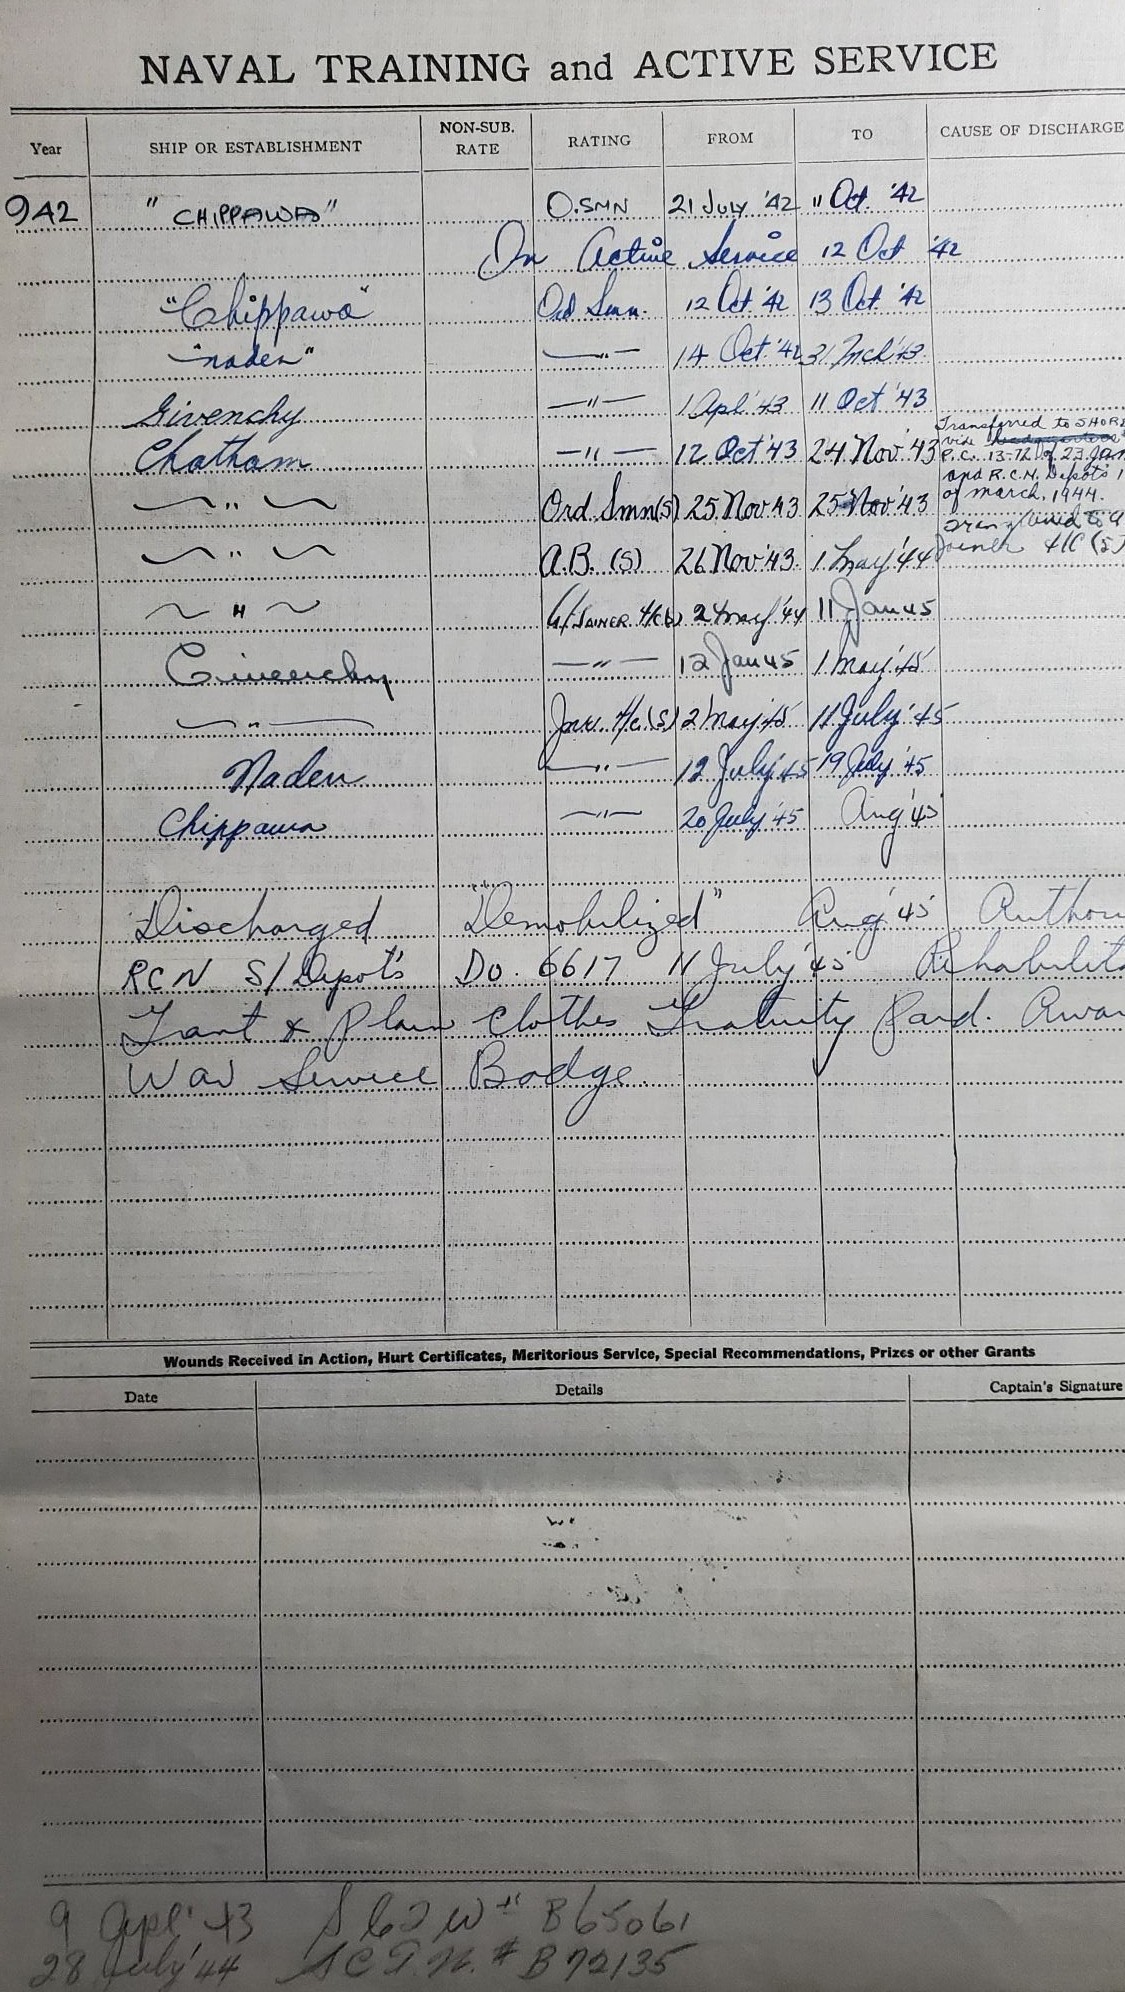 NAVAL TRAINING and ACTIVE SERVICE
Year SHIP OR ESTABLISHMENT NON-SUB. RATE RATING FROM TO CAUSE OF DISCHARGE
942 "CHIPPAWA" O.SMN 21 JULY '42 11 Oct. '42
On Active Service 12 Oct '42
"Chippawa" Ord Smn. 12 Oct '42 13 Oct. '42
"naden" —"— 14 Oct. '42 31 Mch '43
Givenchy —"— 1 Apl '43 11 Oct '43
Chatham —"— 12 Oct '43 24 Nov '43
Transferred to SHORE
vide headquarters
P.C. 13-72 of 23 Jan
and R.C.N. Depot's 1
of march, 1944.
~ " ~ Ord. Smn(S) 25 Nov 43 25 Nov '43
to a
Joiner 4/C (S)
~ " ~ A.B. (S) 26 Nov '43. 1 May '44
~ " ~ A/JOINER 4/C(S) 2 May '44 11 Jan 45
Givenchy —"— 12 Jan 45 1 May '45
~ " — Jnr. 4/c (S) 2 May '45 11 July '45
Naden —"— 12 July '45 19 July '45
Chippawa —"— 20 July '45 Aug '45
Discharged "Demobilized" Aug '45 Author
RCN S/ Depot's DO. 6617 11 July '45 Rehabilit
& Plain Clothes Gratuity Paid. Awar
War Service Badge.
Wounds Received in Action, Hurt Certificates, Meritorious Service, Special Recommendations, Prizes or other Grants
Date Details Captain's Signature
9 Apl' 43 # B65061
28 July '44 # B 72135